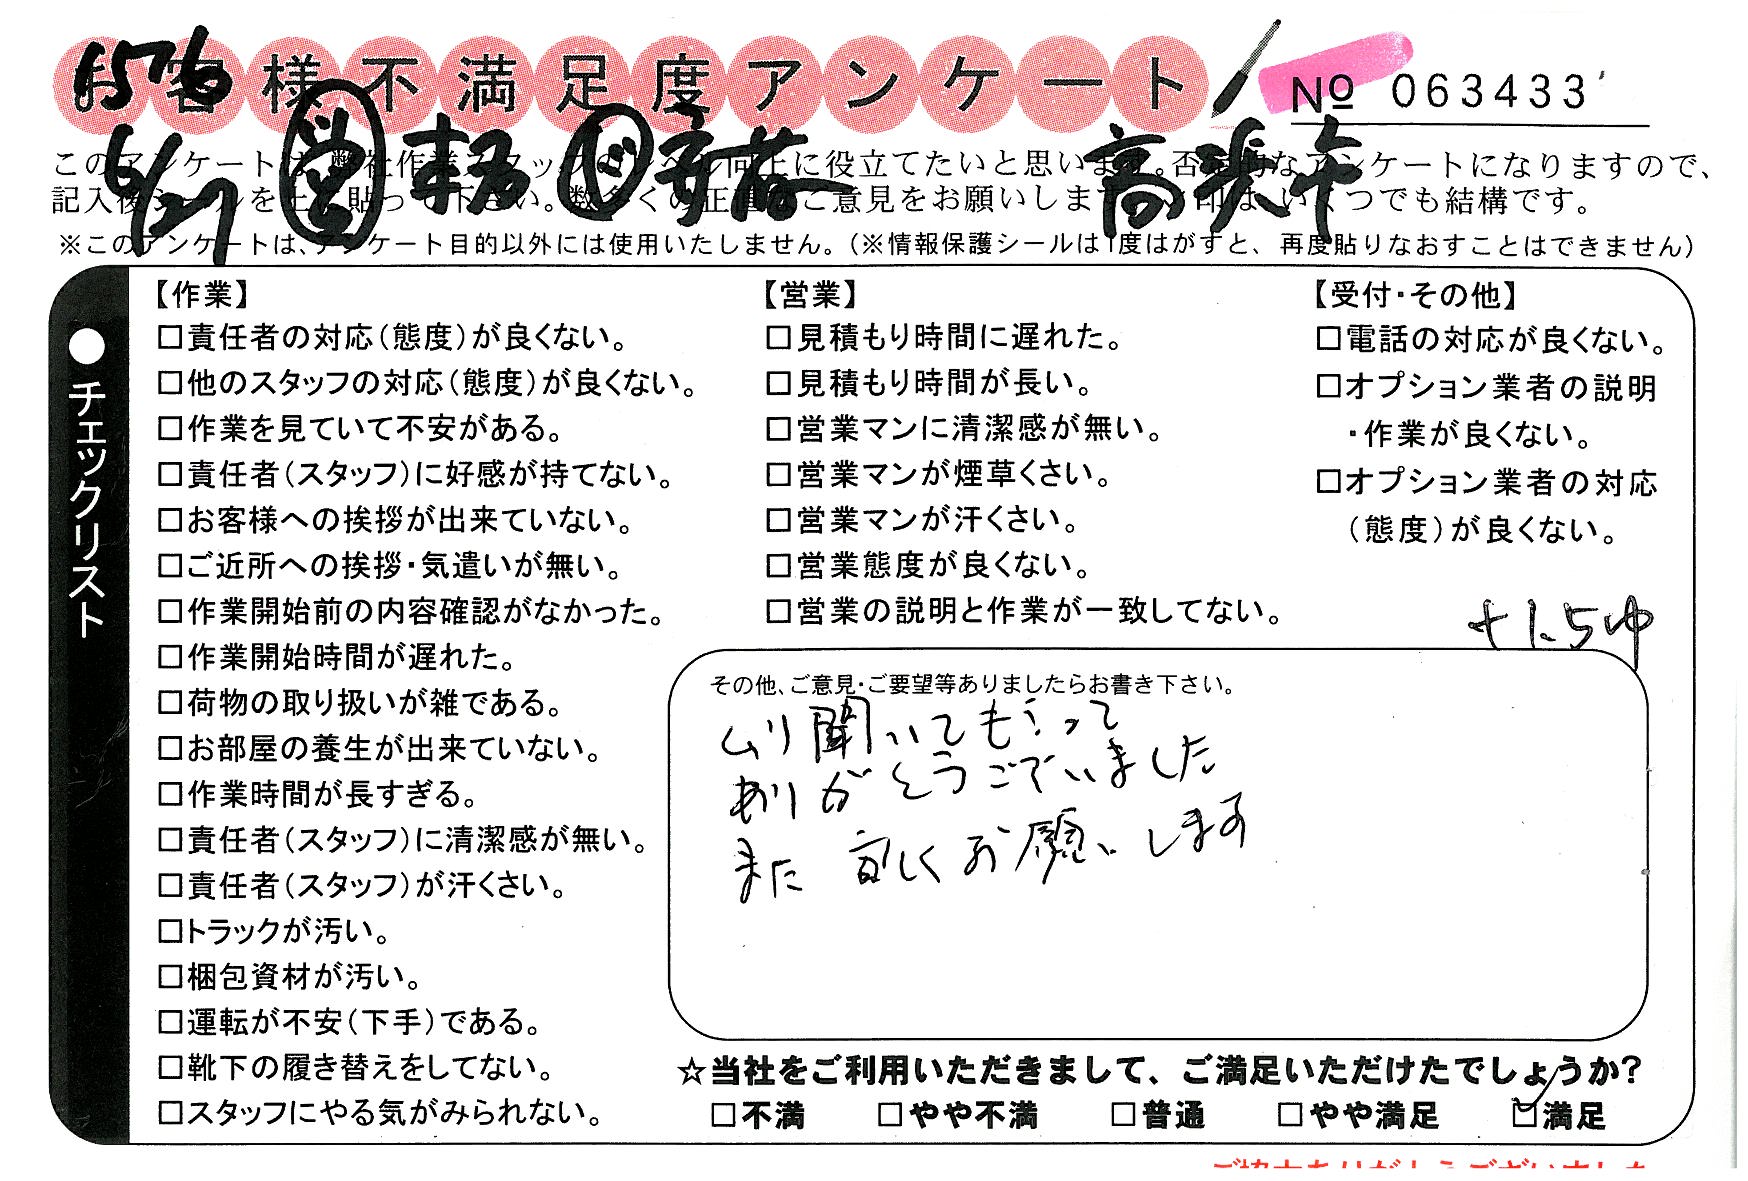 1576
お客様不満足度アンケート
№ 063433
6/27
このアンケートは、弊社作業スタッフのレベル向上に役立てたいと思います。否定的なアンケートになりますので、
記入後シールを上に貼って下さい。数多くの正直なご意見をお願いします。
※このアンケートは、アンケート目的以外には使用いたしません。（※情報保護シールは1度はがすと、再度貼りなおすことはできません）
●チェックリスト
【作業】
□責任者の対応（態度）が良くない。
□他のスタッフの対応（態度）が良くない。
□作業を見ていて不安がある。
□責任者（スタッフ）に好感が持てない。
□お客様への挨拶が出来ていない。
□ご近所への挨拶・気遣いが無い。
□作業開始前の内容確認がなかった。
□作業開始時間が遅れた。
□荷物の取り扱いが雑である。
□お部屋の養生が出来ていない。
□作業時間が長すぎる。
□責任者（スタッフ）に清潔感が無い。
□責任者（スタッフ）が汗くさい。
□トラックが汚い。
□梱包資材が汚い。
□運転が不安（下手）である。
□靴下の履き替えをしてない。
□スタッフにやる気がみられない。
【営業】
□見積もり時間に遅れた。
□見積もり時間が長い。
□営業マンに清潔感が無い。
□営業マンが煙草くさい。
□営業マンが汗くさい。
□営業態度が良くない。
□営業の説明と作業が一致してない。
【受付・その他】
□電話の対応が良くない。
□オプション業者の説明
・作業が良くない。
□オプション業者の対応
（態度）が良くない。
その他、ご意見・ご要望等ありましたらお書き下さい。
ムリ聞いてもらって
ありがとうございました
また宜しくお願いします
☆当社をご利用いただきまして、ご満足いただけたでしょうか?
□不満 □やや不満 □普通 □やや満足 ☑満足
ご協力ありがとうございました